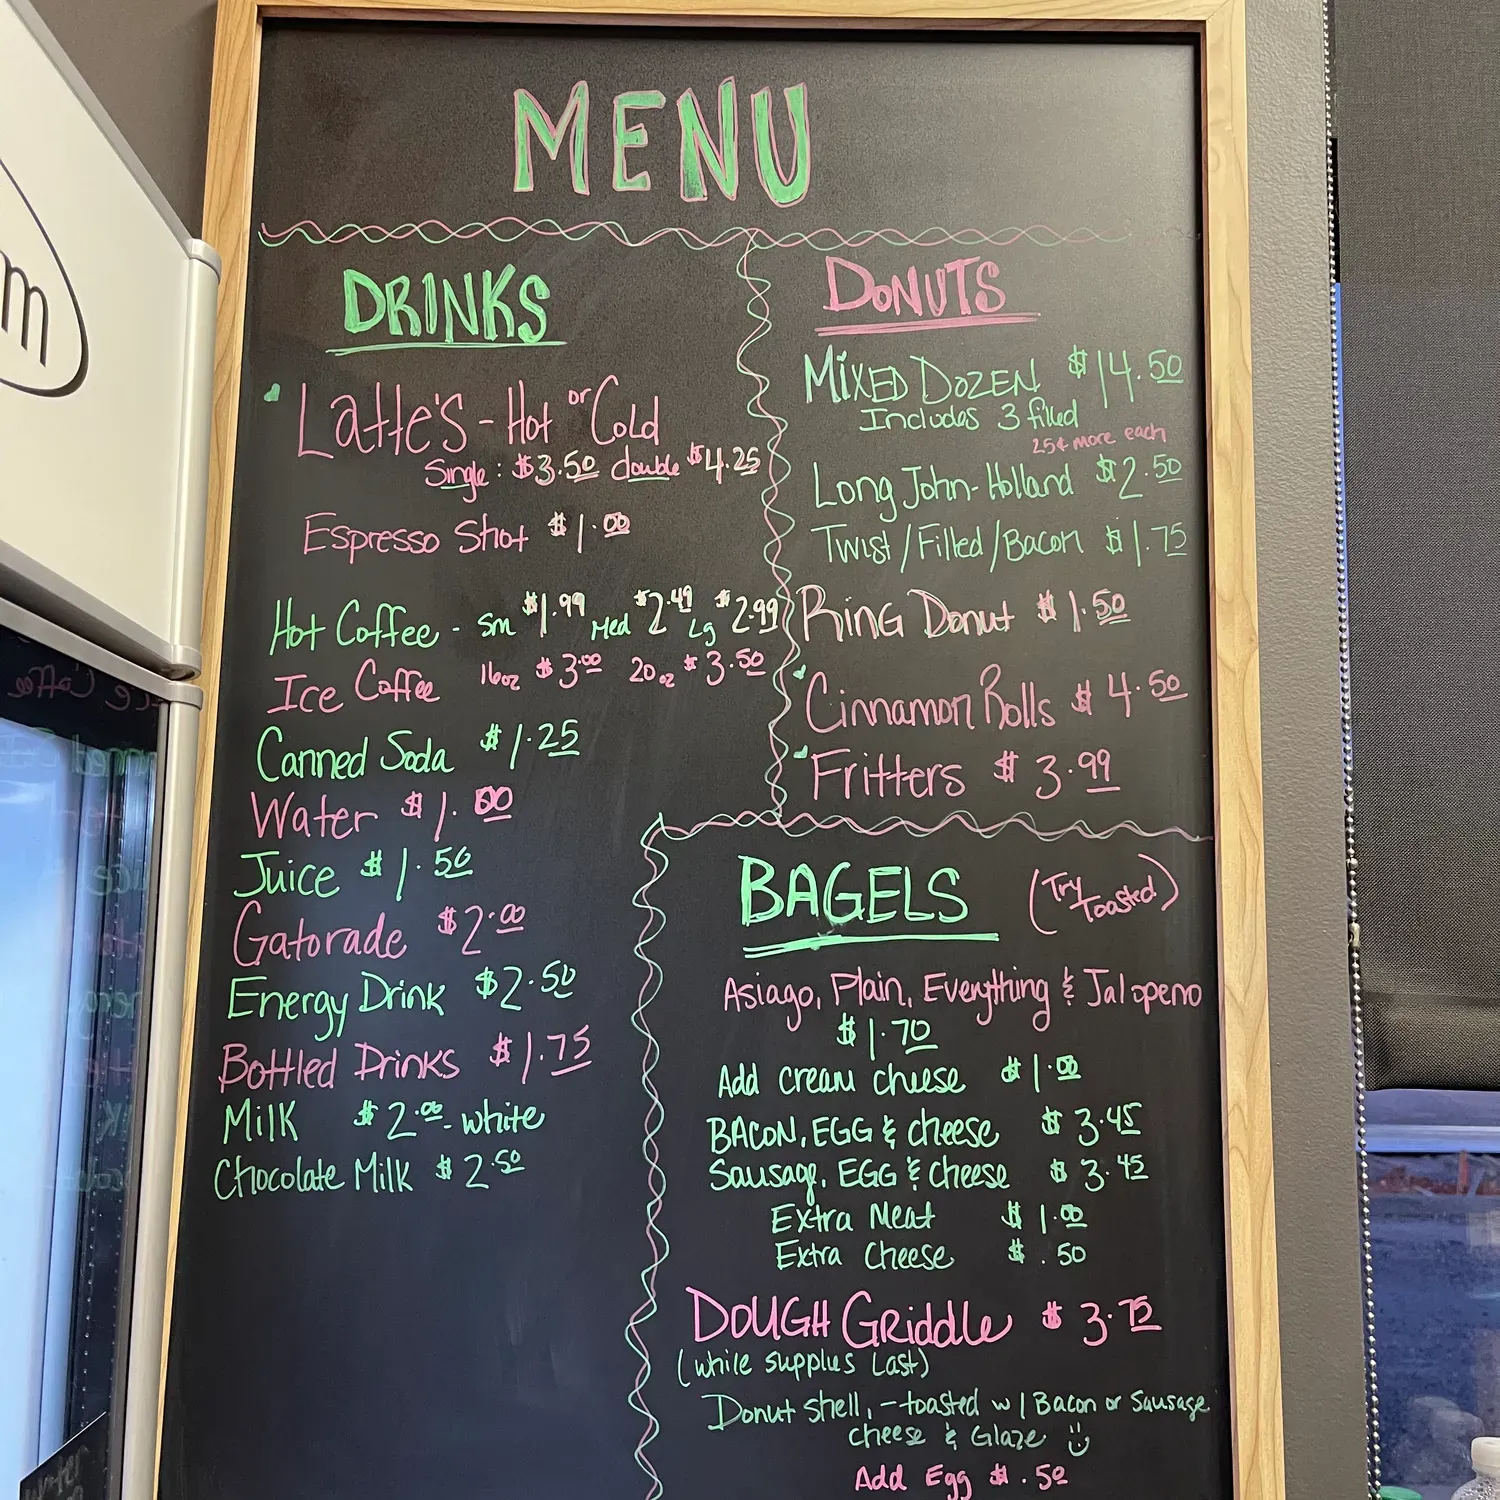 MENU
DRINKS
Latte's - Hot or Cold
Single: $3.50 double $4.25
Espresso Shot $1.00
Hot Coffee - Sm $1.99 Med $2.49 Lg $2.99
Ice Coffee 16oz $3.00 20oz $3.50
Canned Soda $1.25
Water $1.00
Juice $1.50
Gatorade $2.00
Energy Drink $2.50
Bottled Drinks $1.75
Milk $2.00 - white
Chocolate Milk $2.50
DONUTS
MIXED DOZEN $14.50
Includes 3 filled
25¢ more each
Long John-Holland $2.50
Twist/Filled/Bacon $1.75
RING Donut $1.50
Cinnamon Rolls $4.50
Fritters $3.99
BAGELS (Try Toasted)
Asiago, Plain, Everything & Jalapeno
$1.70
Add cream cheese $1.00
BACON, EGG & cheese $3.45
Sausage, EGG & Cheese $3.45
Extra Meat $1.00
Extra Cheese $.50
DOUGH Griddle $3.75
(while supplies Last)
Donut shell, - toasted w/ Bacon or Sausage
cheese & Glaze
Add Egg $.50
m